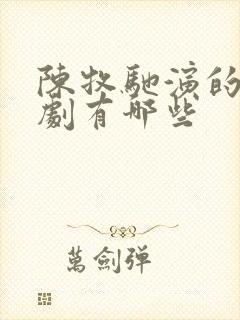 陳牧馳演的
劇有哪些
萬劍弹